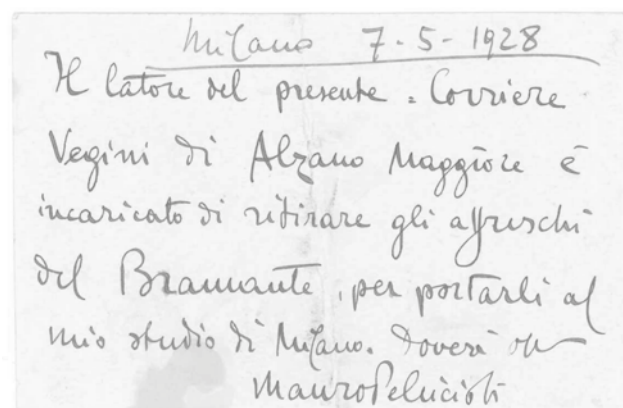 Milano 7-5-1928
Il latore del presente = Corriere
Vegini di Alzano Maggiore è
incaricato di ritirare gli affreschi
del Bramante, per portarli al
mio studio di Milano. Doveri
Mauro Pelliccioli